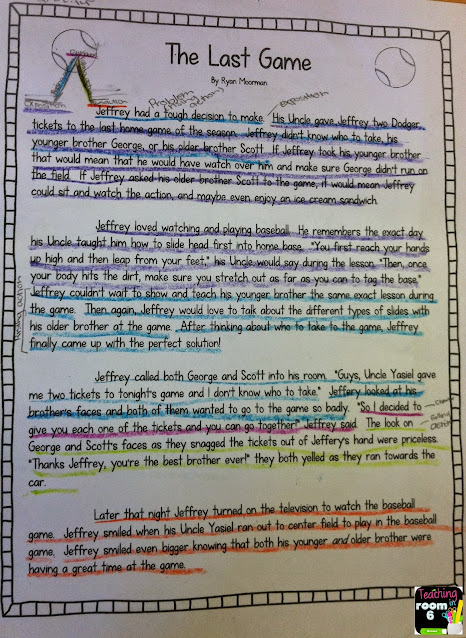 The Last Game
By Ryan Moorman
Exposition
Resolution
Problem
(rising action)
exposition
Jeffrey had a tough decision to make. His Uncle gave Jeffrey two Dodger
tickets to the last home game of the season. Jeffrey didn't know who to take, his
younger brother George, or his older brother Scott. If Jeffrey took his younger brother
that would mean that he would have watch over him and make sure George didn't run on
the field. If Jeffrey asked his older brother Scott to the game, it would mean Jeffrey
could sit and watch the action, and maybe even enjoy an ice cream sandwich.
Jeffrey loved watching and playing baseball. He remembers the exact day
his Uncle taught him how to slide head first into home base. "You first reach your hands
up high and then leap from your feet," his Uncle would say during the lesson. "Then, once
your body hits the dirt, make sure you stretch out as far as you can to tag the base."
Jeffrey couldn't wait to show and teach his younger brother the same exact lesson during
the game. Then again, Jeffrey would love to talk about the different types of slides with
his older brother at the game. After thinking about who to take to the game, Jeffrey
finally came up with the perfect solution!
rising action
Jeffrey called both George and Scott into his room. "Guys, Uncle Yasiel gave
me two tickets to tonight's game and I don't know who to take." Jeffery looked at his
brother's faces and both of them wanted to go to the game so badly. "So I decided to
give you each one of the tickets and you can go together!" Jeffrey said. The look on
George and Scott's faces as they snagged the tickets out of Jeffery's hand were priceless.
"Thanks Jeffrey, you're the best brother ever!" they both yelled as they ran towards the
car.
falling
action
Later that night Jeffrey turned on the television to watch the baseball
game. Jeffrey smiled when his Uncle Yasiel ran out to center field to play in the baseball
game. Jeffrey smiled even bigger knowing that both his younger and older brother were
having a great time at the game.
Teaching
in
room
6